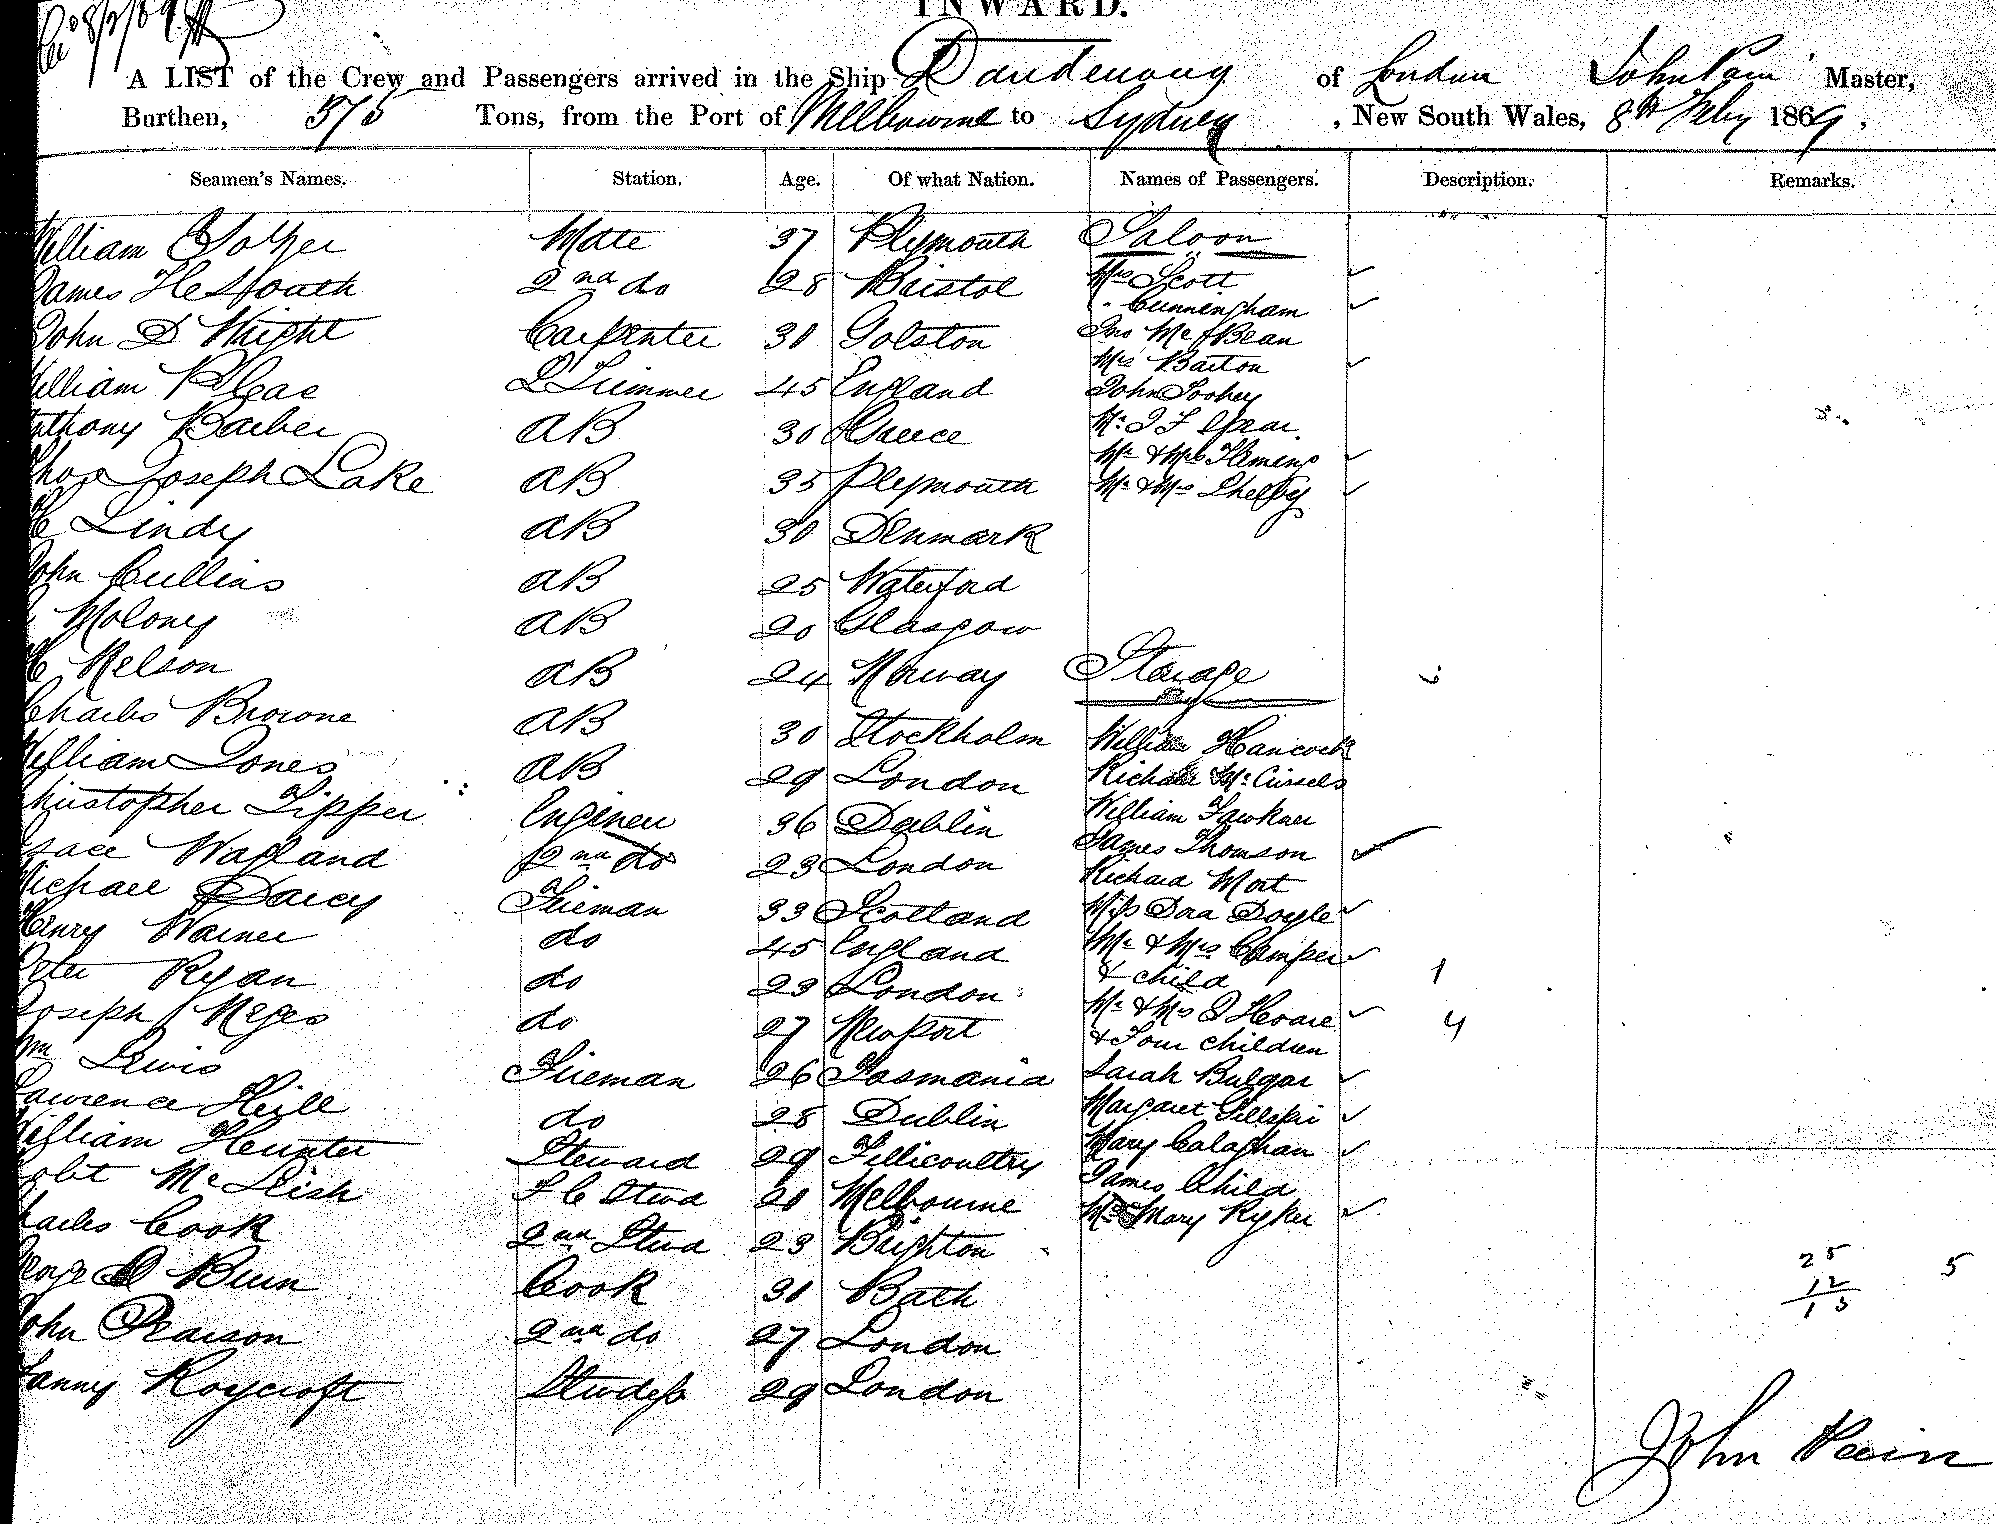 INWARD.
A LIST of the Crew and Passengers arrived in the Ship Dandenong of London John Pain Master,
Burthen, 575 Tons, from the Port of Melbourne to Sydney , New South Wales, 8th Feby 1869 ,
Seamen's Names. Station. Age. Of what Nation. Names of Passengers. Description. Remarks.
William Mate 37 Plymouth Saloon
James 2nd do 28 Bristol Mrs Scott
" Cunningham
John D Wright Carpenter 30 Golston Jno McBean
Mrs Barton
William L Trimmer 45 England John Toohey
Anthony Barber AB 30 Greece Mr J F
Mr & Mrs Fleming
Thos Joseph Lake AB 35 Plymouth Mr & Mrs Shelby
Lindy AB 30 Denmark
John Cullins AB 25 Waterford
Moloney AB 20 Glasgow
Nelson AB 24 Norway Sterage
Charles Browne AB 30 Stockholm William Hancock
William Jones AB 29 London Richard
Christopher Tipper Engineer 36 Dublin William Fawkner
James Thomson
Isaac Wayland 2nd do 23 London Richard Mort
Michael Darcy Fireman 33 Scotland Miss Dora Doyle
Henry Warner do 45 England Mr & Mrs Camper
Peter Ryan do 23 London & child 1
Joseph do 27 Newport Mr & Mrs J Hoare 4
& Four children
Wm Lewis Fireman 26 Tasmania Sarah Bulgar
Lawrence Hill do 28 Dublin Margaret Gillespi
William Hunter Steward 29 Tillicoultry Mary Calaghan
Robt McLeish F C Stwd 20 Melbourne James Child
Charles Cook 2nd Stwd 23 Brighton Mary Ryker
George Cook 30 Bath 25 5
12
13
John Pearson 2nd do 27 London
Fanny Roycroft Stwdess 29 London
John Pain